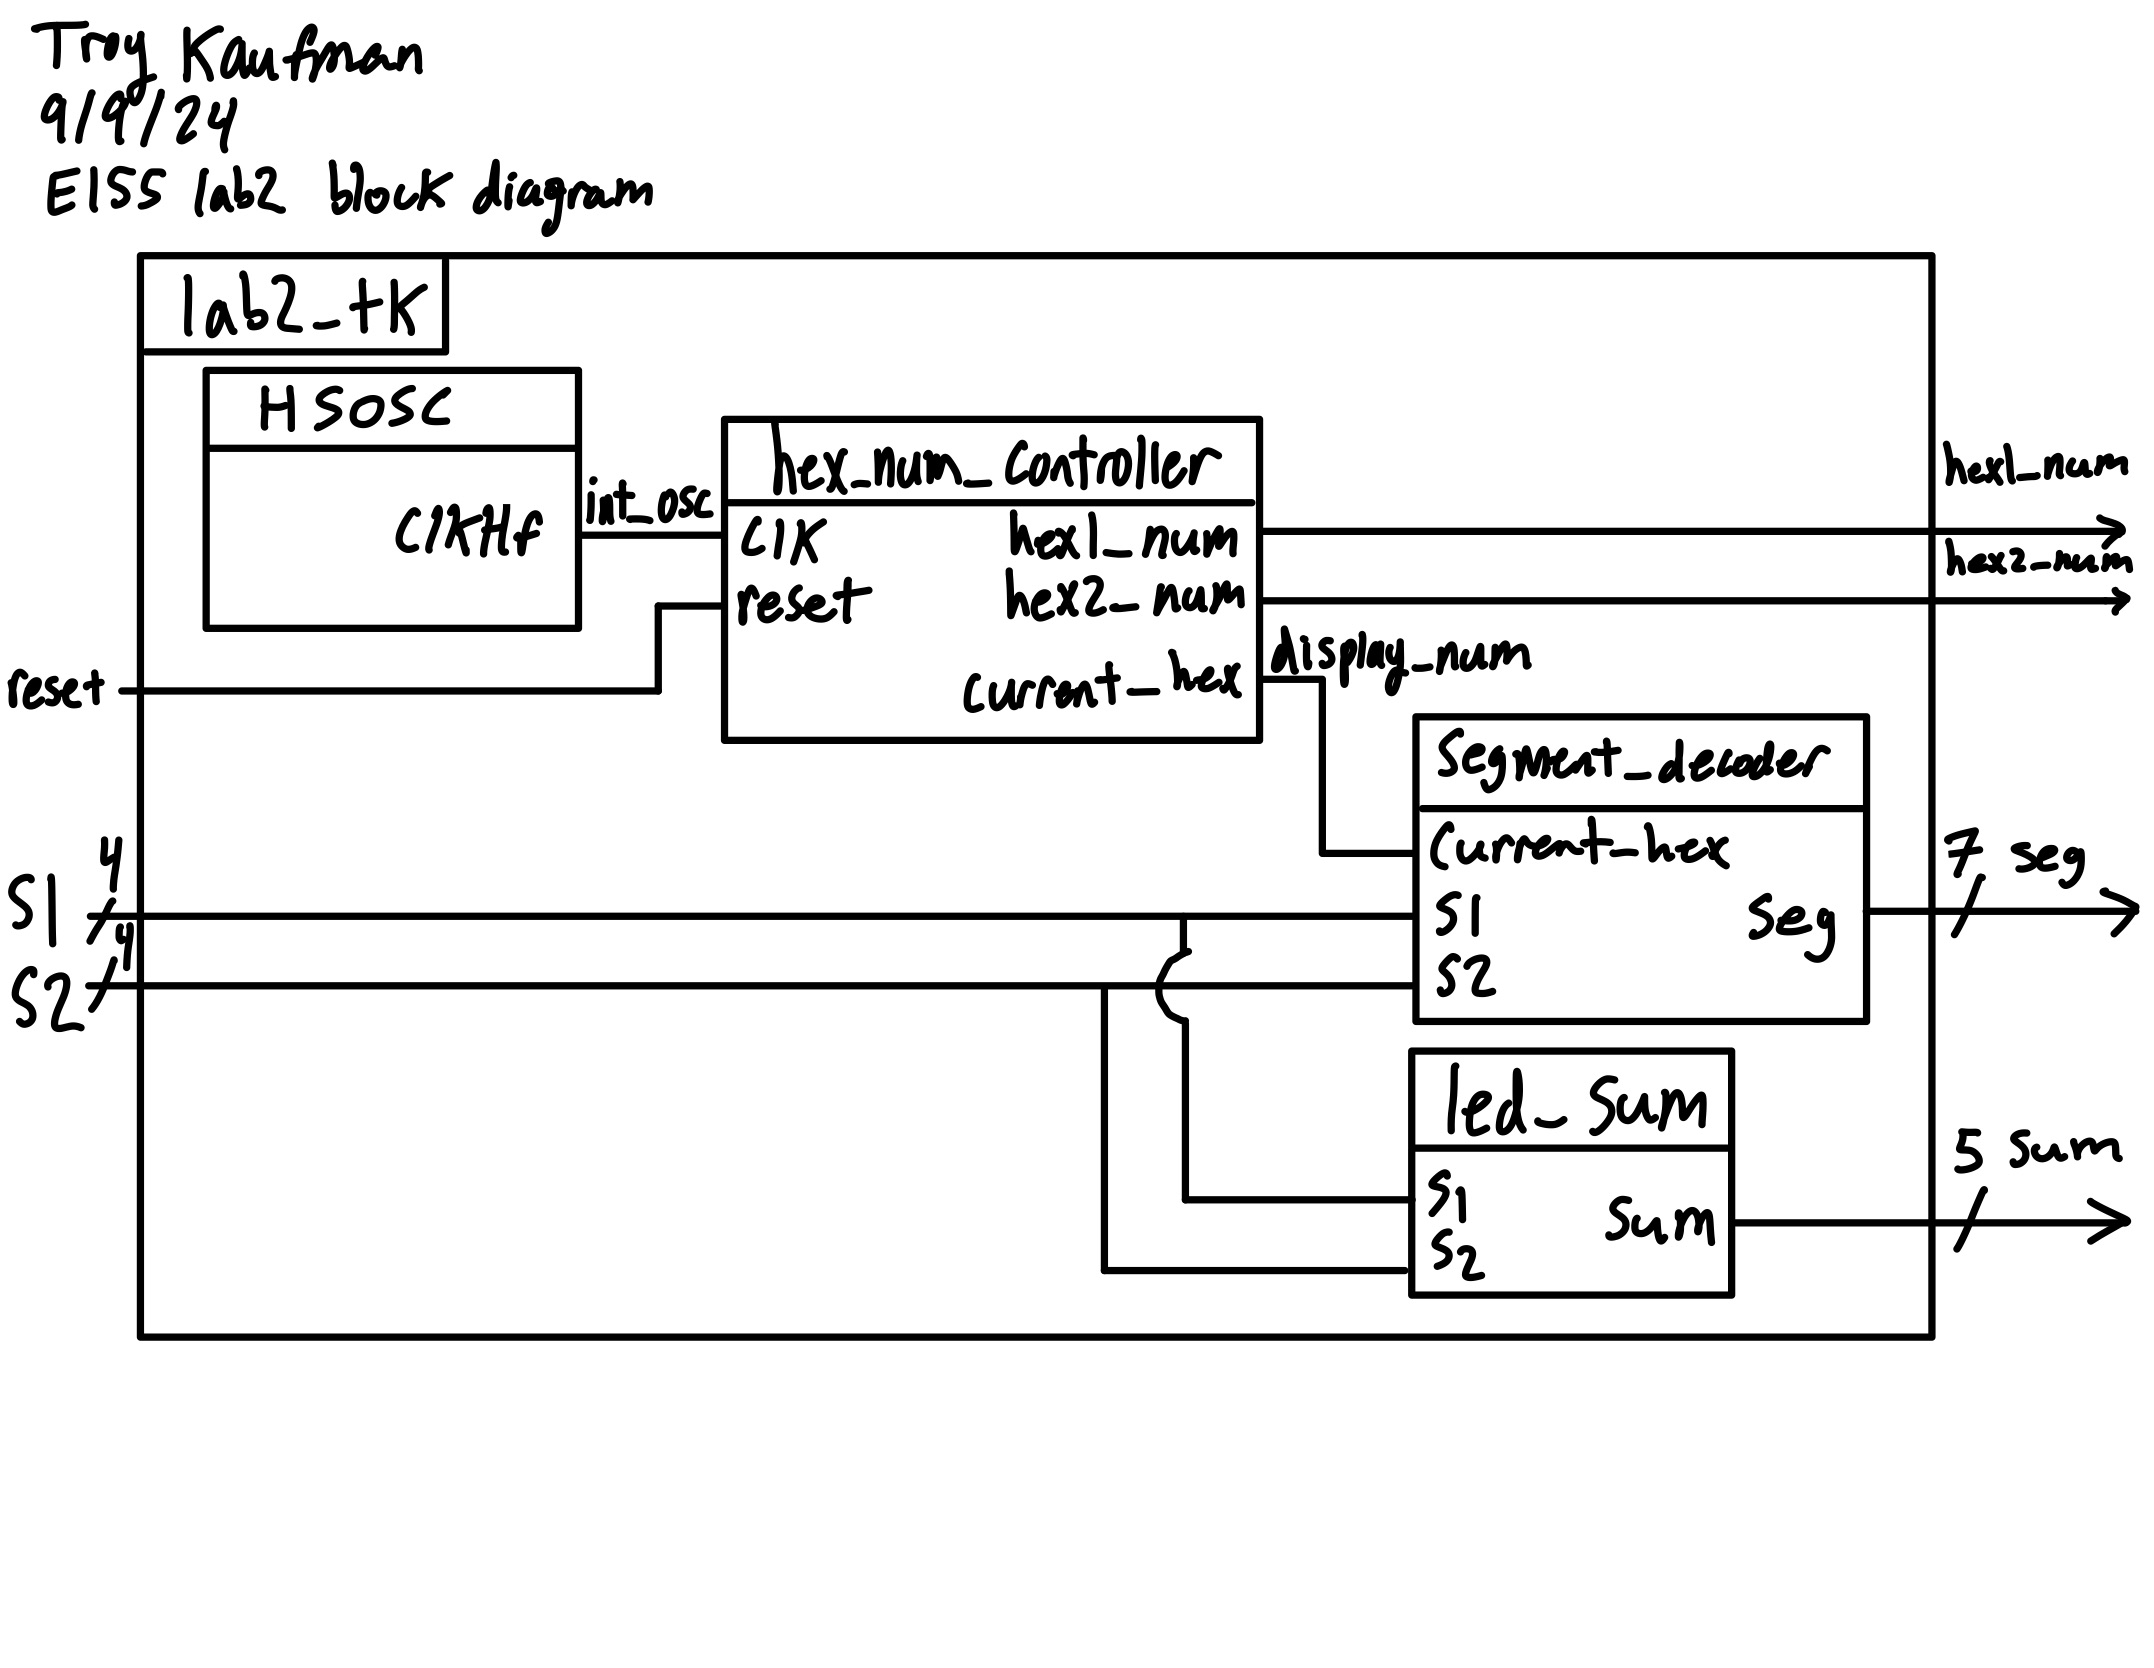 Troy Kaufman
9/9/24
E155 lab2 block diagram
lab2_tk
HSOSC
clkHf
int_osc
hex_num_controller
clk
reset
hex1_num
hex2_num
current_hex
hex1_num
hex2_num
display_num
reset
segment_decoder
current_hex
S1
S2
seg
7 seg
S1
4
S2
4
led_sum
S1
S2
sum
5 sum